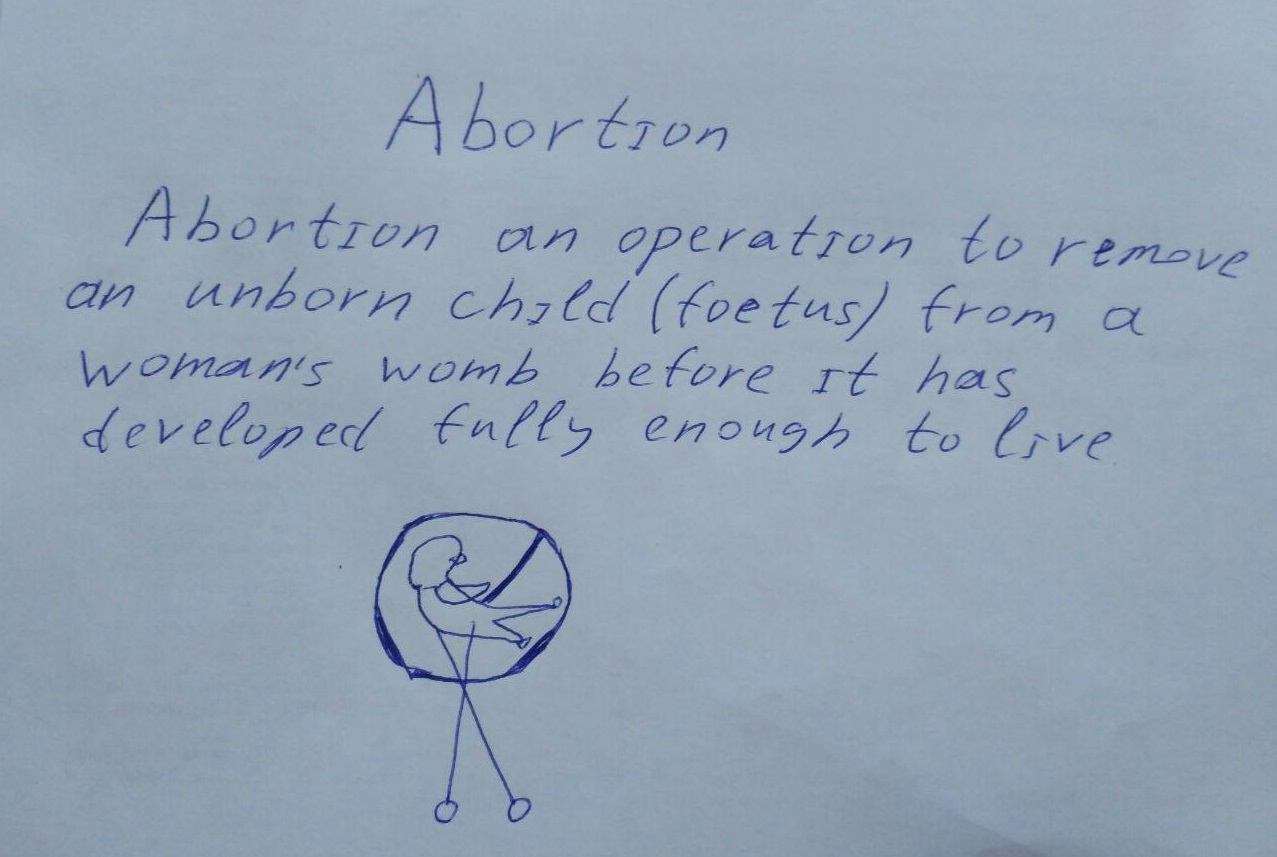 Abortion
Abortion an operation to remove
an unborn child (foetus) from a
woman's womb before it has
developed fully enough to live